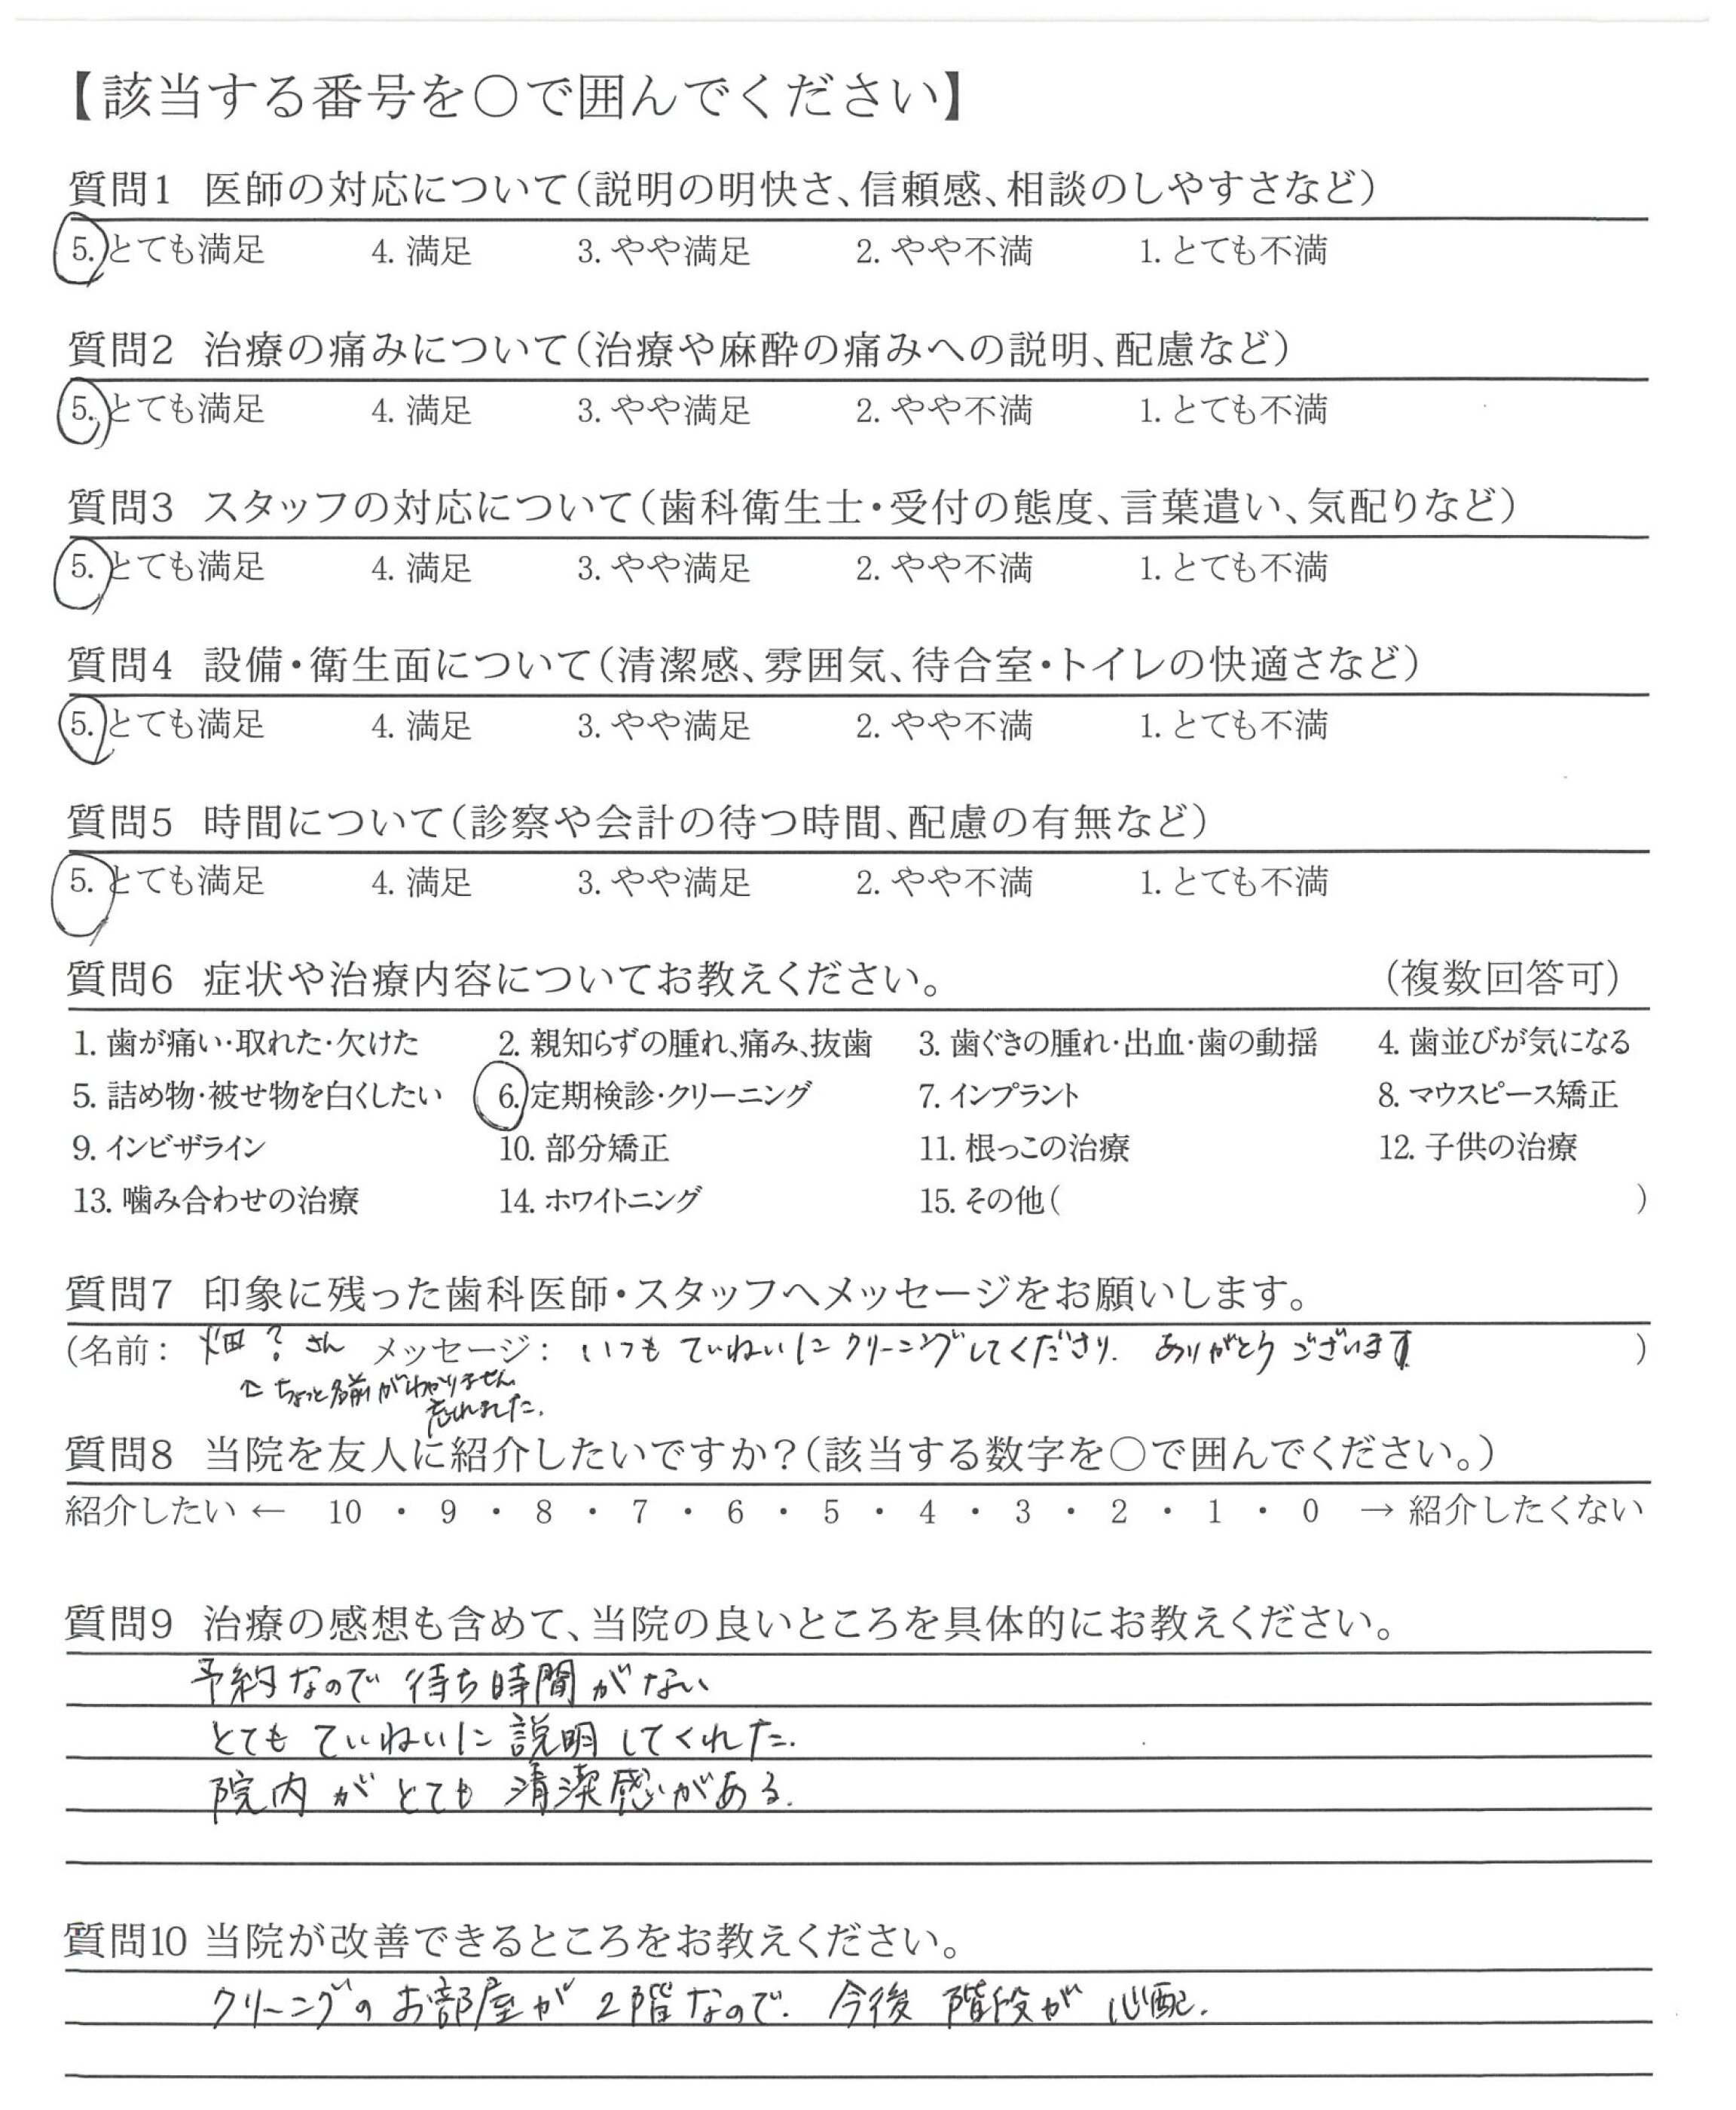 【該当する番号を○で囲んでください】
質問1 医師の対応について（説明の明快さ、信頼感、相談のしやすさなど）
5. とても満足 4. 満足 3. やや満足 2. やや不満 1. とても不満
質問2 治療の痛みについて（治療や麻酔の痛みへの説明、配慮など）
5. とても満足 4. 満足 3. やや満足 2. やや不満 1. とても不満
質問3 スタッフの対応について（歯科衛生士・受付の態度、言葉遣い、気配りなど）
5. とても満足 4. 満足 3. やや満足 2. やや不満 1. とても不満
質問4 設備・衛生面について（清潔感、雰囲気、待合室・トイレの快適さなど）
5. とても満足 4. 満足 3. やや満足 2. やや不満 1. とても不満
質問5 時間について（診察や会計の待つ時間、配慮の有無など）
5. とても満足 4. 満足 3. やや満足 2. やや不満 1. とても不満
質問6 症状や治療内容についてお教えください。 （複数回答可）
1. 歯が痛い・取れた・欠けた 2. 親知らずの腫れ、痛み、抜歯 3. 歯ぐきの腫れ・出血・歯の動揺 4. 歯並びが気になる
5. 詰め物・被せ物を白くしたい 6. 定期検診・クリーニング 7. インプラント 8. マウスピース矯正
9. インビザライン 10. 部分矯正 11. 根っこの治療 12. 子供の治療
13. 噛み合わせの治療 14. ホワイトニング 15. その他（ ）
質問7 印象に残った歯科医師・スタッフへメッセージをお願いします。
（名前： 畑？さん メッセージ： いつもていねいにクリーニングしてくださり. ありがとうございます ）
← ちょっと名前がわかりません
忘れました.
質問8 当院を友人に紹介したいですか？（該当する数字を○で囲んでください。）
紹介したい ← 10 ・ 9 ・ 8 ・ 7 ・ 6 ・ 5 ・ 4 ・ 3 ・ 2 ・ 1 ・ 0 → 紹介したくない
質問9 治療の感想も含めて、当院の良いところを具体的にお教えください。
予約なので 待ち時間がない
とても ていねいに 説明してくれた.
院内が とても 清潔感がある.
質問10 当院が改善できるところをお教えください。
クリーニングの お部屋が 2階なので. 今後 階段が 心配.